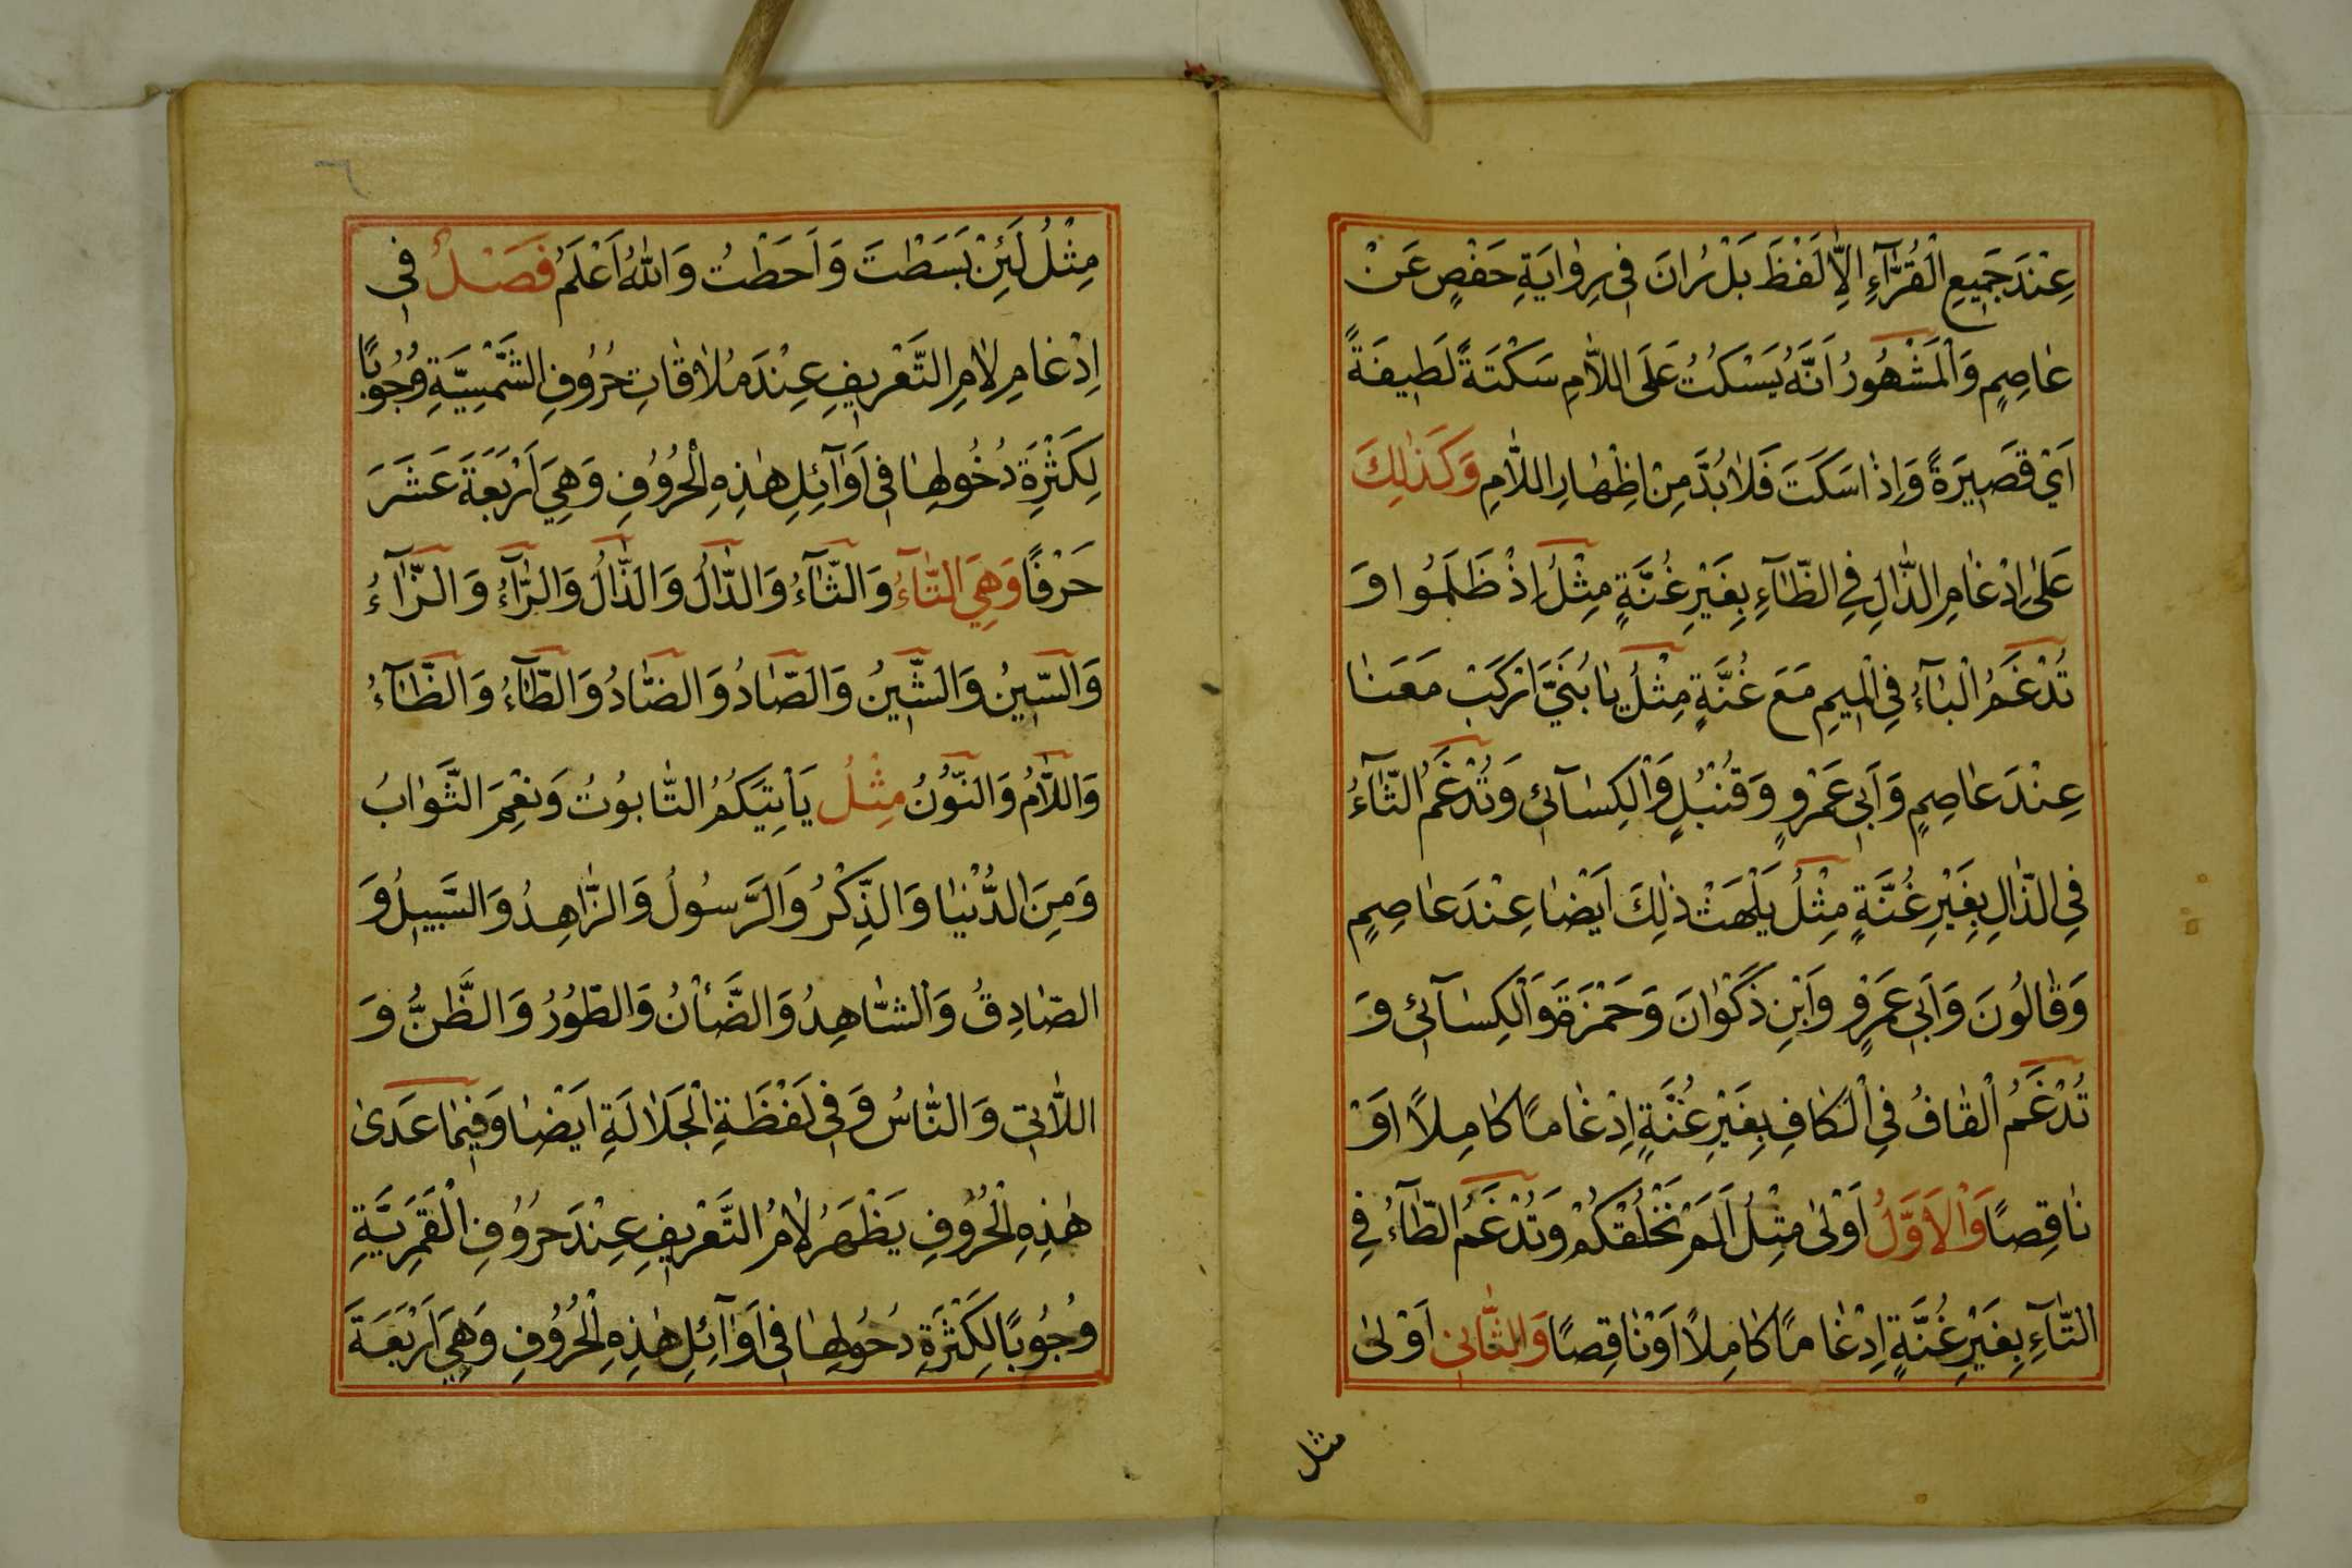 عِنْدَ جَمِيعِ الْقُرَّآءِ اِلَّا لَفْظَ بَلْ رَانَ فِي رِوٰايَةِ حَفْصٍ عَنْ
عٰاصِمٍ وَالْمَشْهُورُ اَنَّهُ يَسْكُتُ عَلَى اللَّامِ سَكْتَةً لَطِيفَةً
اَيْ قَصِيرَةً وَاِذٰا سَكَتَ فَلٰا بُدَّ مِنْ اِظْهٰارِ اللَّامِ وَكَذٰلِكَ
عَلٰى اِدْغٰامِ الذَّالِ فِي الظَّآءِ بِغَيْرِ غُنَّةٍ مِثْلُ اِذْ ظَلَمُوا وَ
تُدْغَمُ الْبٰآءُ فِي الْمِيمِ مَعَ غُنَّةٍ مِثْلُ يٰا بُنَيَّ ارْكَبْ مَعَنٰا
عِنْدَ عٰاصِمٍ وَاَبِي عَمْرٍو وَقُنْبُلٍ وَالْكِسٰآئِي وَتُدْغَمُ الثَّآءُ
فِي الذَّالِ بِغَيْرِ غُنَّةٍ مِثْلُ يَلْهَثْ ذٰلِكَ اَيْضٰا عِنْدَ عٰاصِمٍ
وَقٰالُونَ وَاَبِي عَمْرٍو وَابْنِ ذَكْوٰانَ وَحَمْزَةَ وَالْكِسٰآئِي وَ
تُدْغَمُ الْقٰافُ فِي الْكٰافِ بِغَيْرِ غُنَّةٍ اِدْغٰامًا كٰامِلًا اَوْ
نٰاقِصًا وَالْاَوَّلُ اَوْلٰى مِثْلُ اَلَمْ نَخْلُقْكُمْ وَتُدْغَمُ الطَّآءُ فِي
التَّآءِ بِغَيْرِ غُنَّةٍ اِدْغٰامًا كٰامِلًا اَوْ نٰاقِصًا وَالثَّانِي اَوْلٰى
مثل
٦
مِثْلُ لَئِنْ بَسَطْتَ وَاَحَطْتُ وَاللّٰهُ اَعْلَمُ فَصْلٌ فِي
اِدْغٰامِ لٰامِ التَّعْرِيفِ عِنْدَ مُلٰاقٰاتِ حُرُوفِ الشَّمْسِيَّةِ وُجُوبًا
لِكَثْرَةِ دُخُولِهٰا فِي اَوٰآئِلِ هٰذِهِ الْحُرُوفِ وَهِيَ اَرْبَعَةَ عَشَرَ
حَرْفًا وَهِيَ التَّآءُ وَالثَّآءُ وَالدَّالُ وَالذَّالُ وَالرَّآءُ وَالزَّآءُ
وَالسِّينُ وَالشِّينُ وَالصَّادُ وَالضَّادُ وَالطَّآءُ وَالظَّآءُ
وَاللَّامُ وَالنُّونُ مِثْلُ يَأْتِيَكُمُ التَّابُوتُ وَنِعْمَ الثَّوٰابُ
وَمِنَ الدُّنْيٰا وَالذِّكْرُ وَالرَّسُولُ وَالزَّاهِدُ وَالسَّبِيلُ وَ
الصّٰادِقُ وَالشَّاهِدُ وَالضَّأْنُ وَالطُّورُ وَالظَّنُّ وَ
اللَّاتِي وَالنَّاسُ وَفِي لَفْظَةِ الْجَلٰالَةِ اَيْضٰا وَفِيمٰا عَدَى
هٰذِهِ الْحُرُوفِ يَظْهَرُ لٰامُ التَّعْرِيفِ عِنْدَ حُرُوفِ الْقَمَرِيَّةِ
وُجُوبًا لِكَثْرَةِ دُخُولِهٰا فِي اَوٰآئِلِ هٰذِهِ الْحُرُوفِ وَهِيَ اَرْبَعَةَ